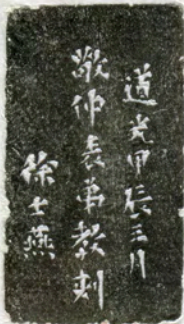 道光甲辰三月
敬仲表弟教刻
徐士燕